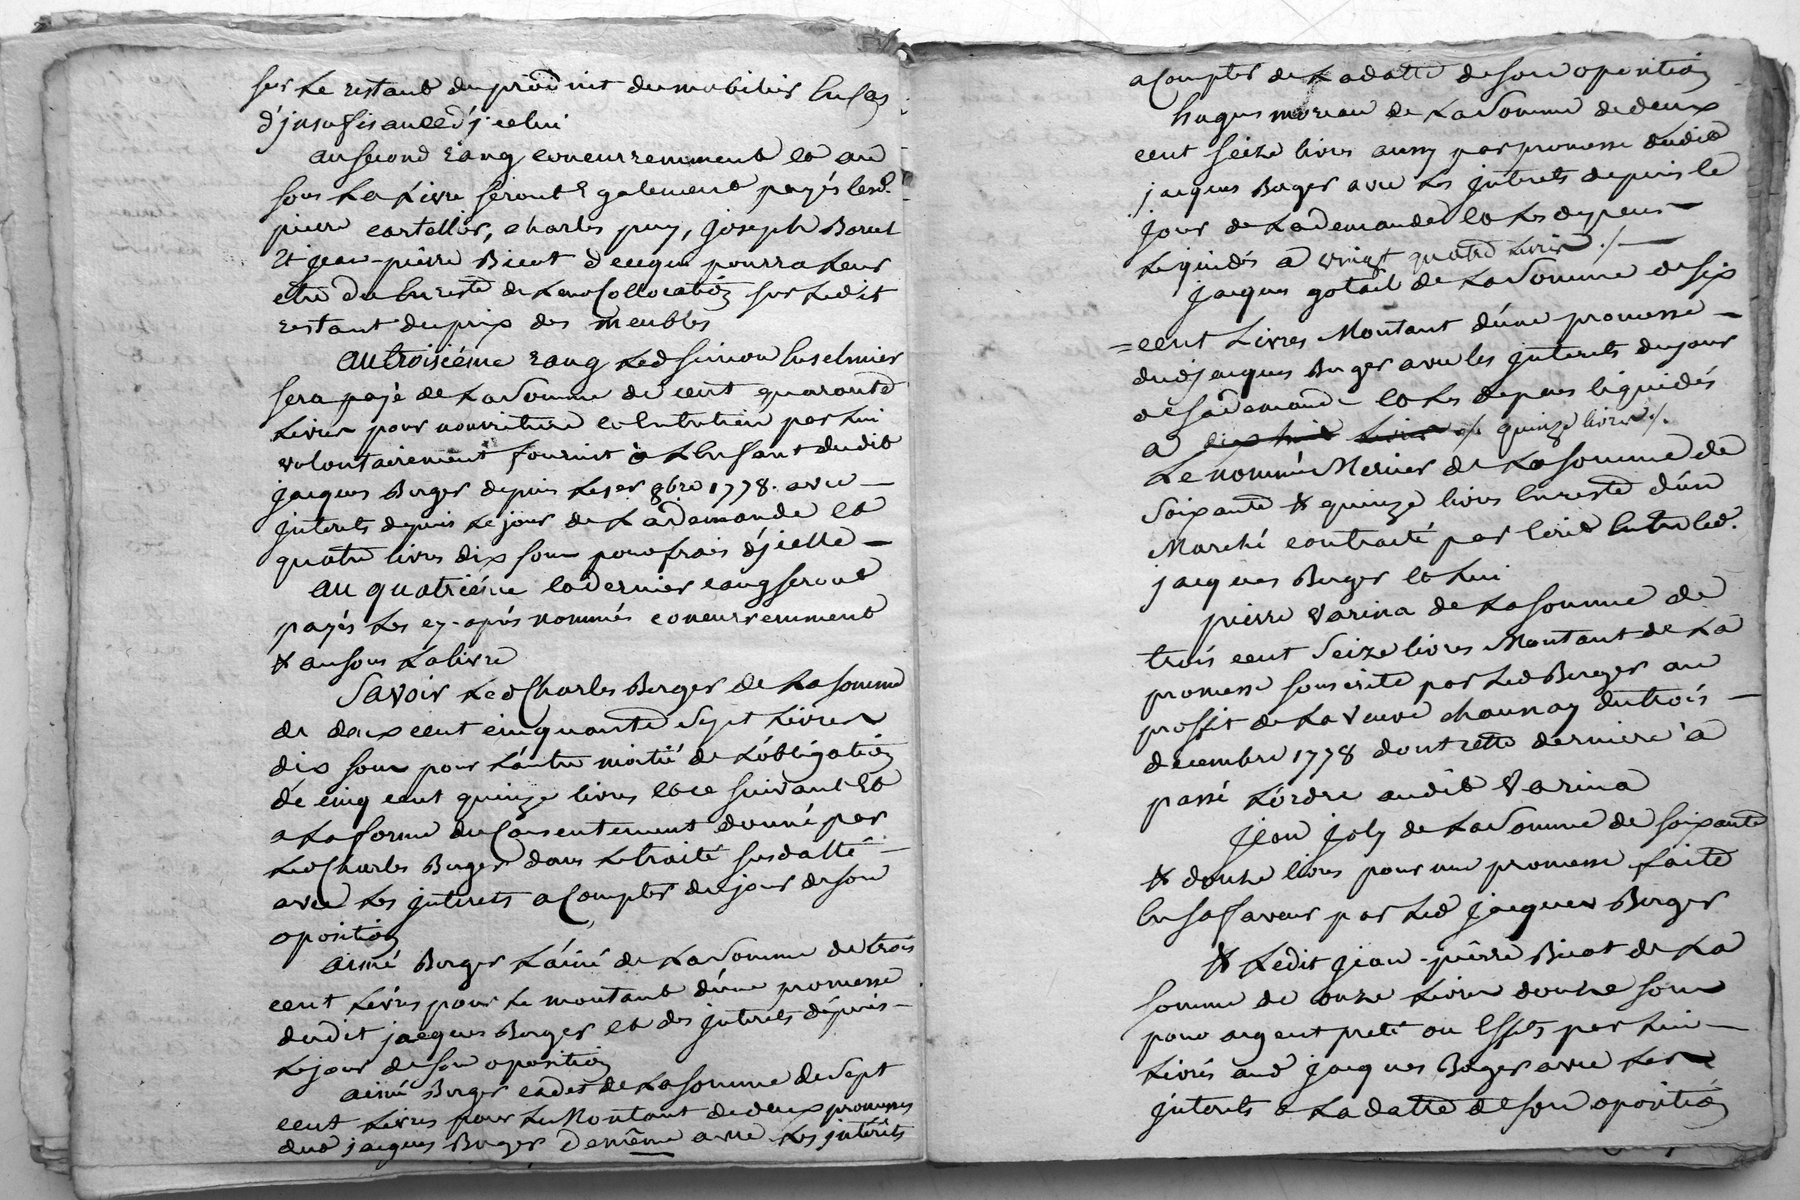 sur Le restant du produit du mobilier En cas
d'jnsufisance d'jcelui
au second rang concurremment Et au
sous La Livre seront Egalement payés lesd.
pierre cartellier, charles puy, joseph Borut
Et jean-pierre Bicot de ce qui pourra Leur
etre du En reste de Leur Collocation sur Ledit
restant du prix des meubles
au troisiéme rang Led simon
sera payé de La somme de cent quarante
Livres pour nourriture Et Entretien par Lui
volontairement fournit à L'Enfant dudit
jacques Berger depuis Le 1er 8bre 1778. avec
jnterets depuis Le jour de La demande Et
quatre livres dix sous pour frais d'jcelle
au quatriéme Et dernier rang seront
payés Les cy-aprés nommés concurremment
& au sous La livre
Savoir Led Charles Berger de La somme
de deux cent cinquante sept Livres
dix sous pour L'autre moitié de L'obligation
de cinq cent quinze livres Et ce suivant Et
a La forme du Consentement donné par
Led Charles Berger dans Le traité susdatté
avec Les jnterets a Compter du jour de son
oposition
aimé Berger L'ainé de La Somme de trois
cent Livres pour Le montant d'une promesse
dudit jacques Berger Et des jnterets dépuis
Le jour de son oposition
aimé Berger cadet de La somme de Sept
cent Livres pour Le Montant de deux promesses
dud jacques Berger de même avec Les jnterêts
a Compter de La datte de son oposition
hugues moreau de La Somme de deux
cent seize livres aussy par promesse dudit
jacques Berger avec Les jnterets depuis le
jour de La demande Et Les depens
Liquidés a vingt quatre Livres ./.
jacques gotail de La Somme de six
=cent Livres Montant d'une promesse
dud jacques Berger avec les jnterets du jour
de sa demande Et Les depens liquidés
a dix huit Livres ./. quinze livres ./.
Le nommé Mernier de La somme de
Soixante & quinze livres En reste d'un
Marché contracté par Ecrit Entre led.
jacques Berger Et Lui
pierre Varina de La somme de
trois cent Seize livres Montant de La
promesse souscrite par Led Berger au
proffit de La Veuve chaunay du trois
decembre 1778 dont cette derniere à
passé L'ordre audit Varina
jean joly de La Somme de soixante
& douze livres pour une promesse faite
En sa faveur par Led jacques Berger
& Ledit jean-pierre Bicot de La
somme de onze Livres douze sous
pour argent preté ou Effets par Lui
Livrés aud jacques Berger avec Les
jnterets a La datte de son oposition